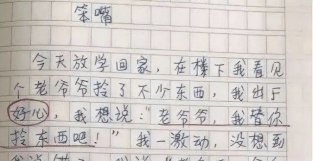 笨嘴
今天放学回家，在楼下我看见
个老爷爷拎了不少东西，我出于
好心，我想说："老爷爷，我替你
拎东西吧！"我一激动，没想到